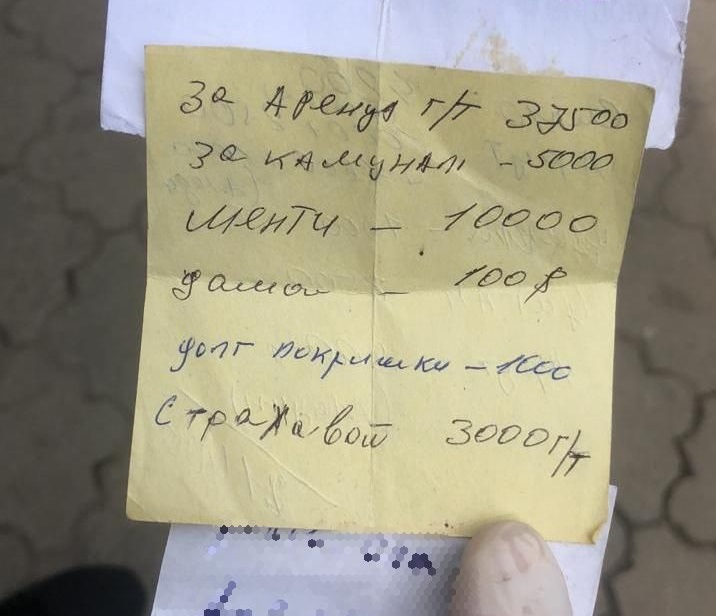 За Аренуя г/т 37500
За камунал - 5000
Менти - 10000
дамой - 100$
долг покришки - 1000
Страховой 3000 г/т